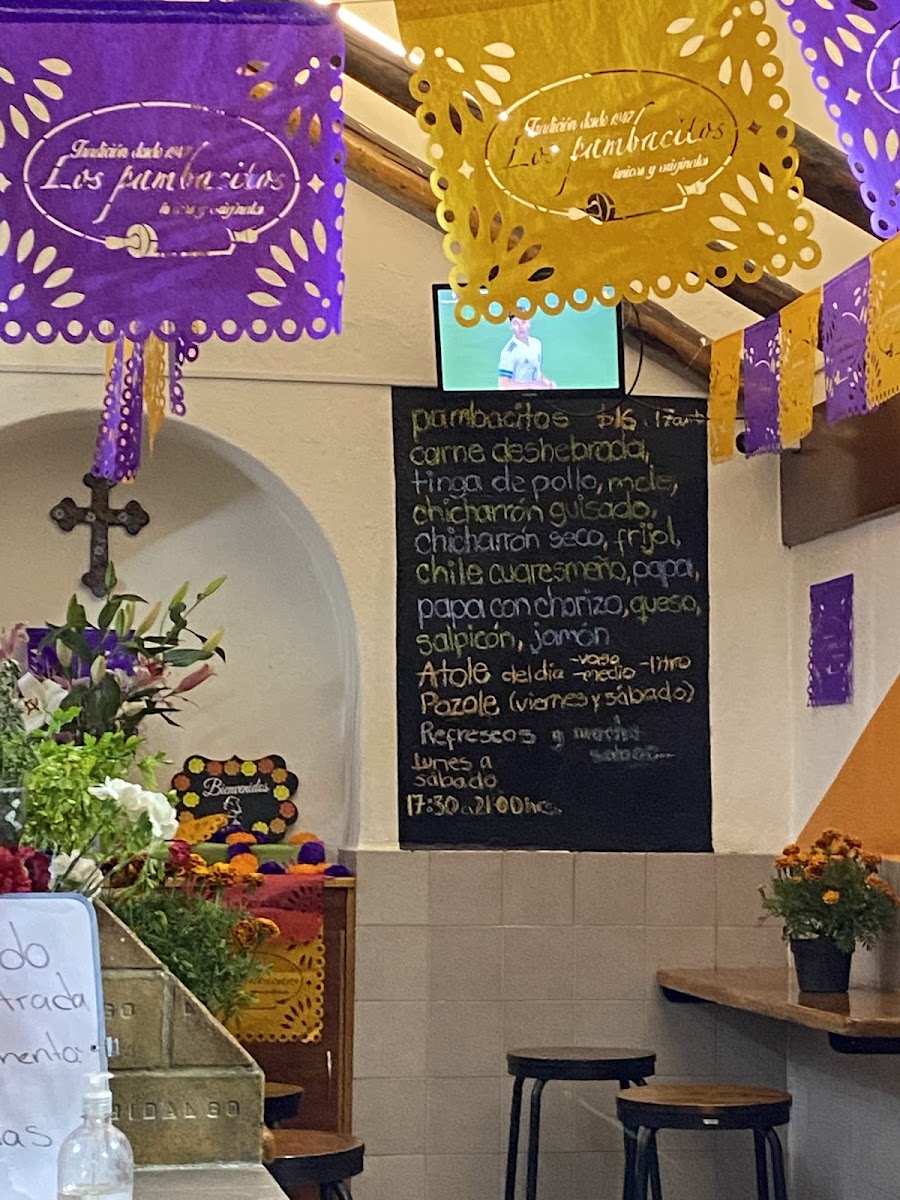 Tradición desde 1947
Los pambacitos
únicos y originales
Tradición desde 1947
Los pambacitos
únicos y originales
pambacitos $16
carne deshebrada,
tinga de pollo, mole,
chicharrón guisado,
chicharrón seco, frijol,
chile cuaresmeño, papa,
papa con chorizo, queso,
salpicón, jamón
Atole del día -vaso -medio -litro
Pozole (viernes y sábado)
Refrescos y
lunes a
sábado
17:30 a 21:00 hrs.
Bienvenidos
do
trada
menta
as